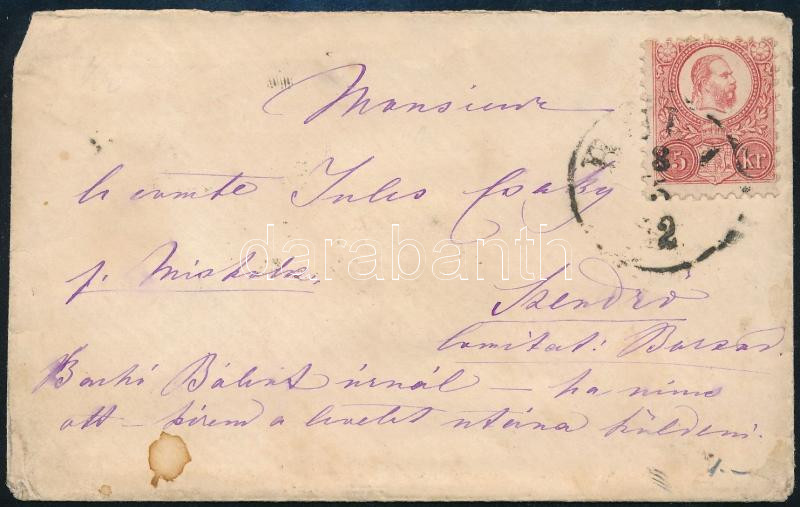 Monsieur
le comte Jules Csaky
p. Miskolcz.
Szendrő
Comitat: Borsod.
Bálint úrnál – ha nincs
ott – kérem a levelet utána küldeni.
5 kr
darabanth